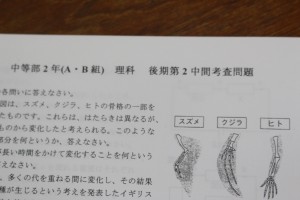 中等部2年(A・B組) 理科 後期第2中間考査問題
各問いに答えなさい。
図は、スズメ、クジラ、ヒトの骨格の一部を
たものです。これらは、はたらきは異なるが、
ものから変化したと考えられる。このような
部分を何というか、答えなさい。
長い時間をかけて変化することを何という
えなさい。
、多くの代を重ねる間に変化し、その結果
種が生じるという考えを発表したイギリス
スズメ
クジラ
ヒト